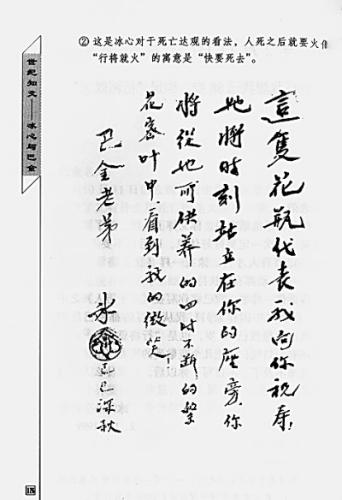 ② 这是冰心对于死亡达观的看法，人死之后就要火化
“行将就火”的寓意是“快要死去”。
世纪知交——冰心与巴金
這隻花瓶代表我向你祝寿！
她將时刻站立在你的座旁，你
將從她可供养的四时不断的繁
花密叶中看到我的微笑！
巴金老弟
冰心
己巳深秋